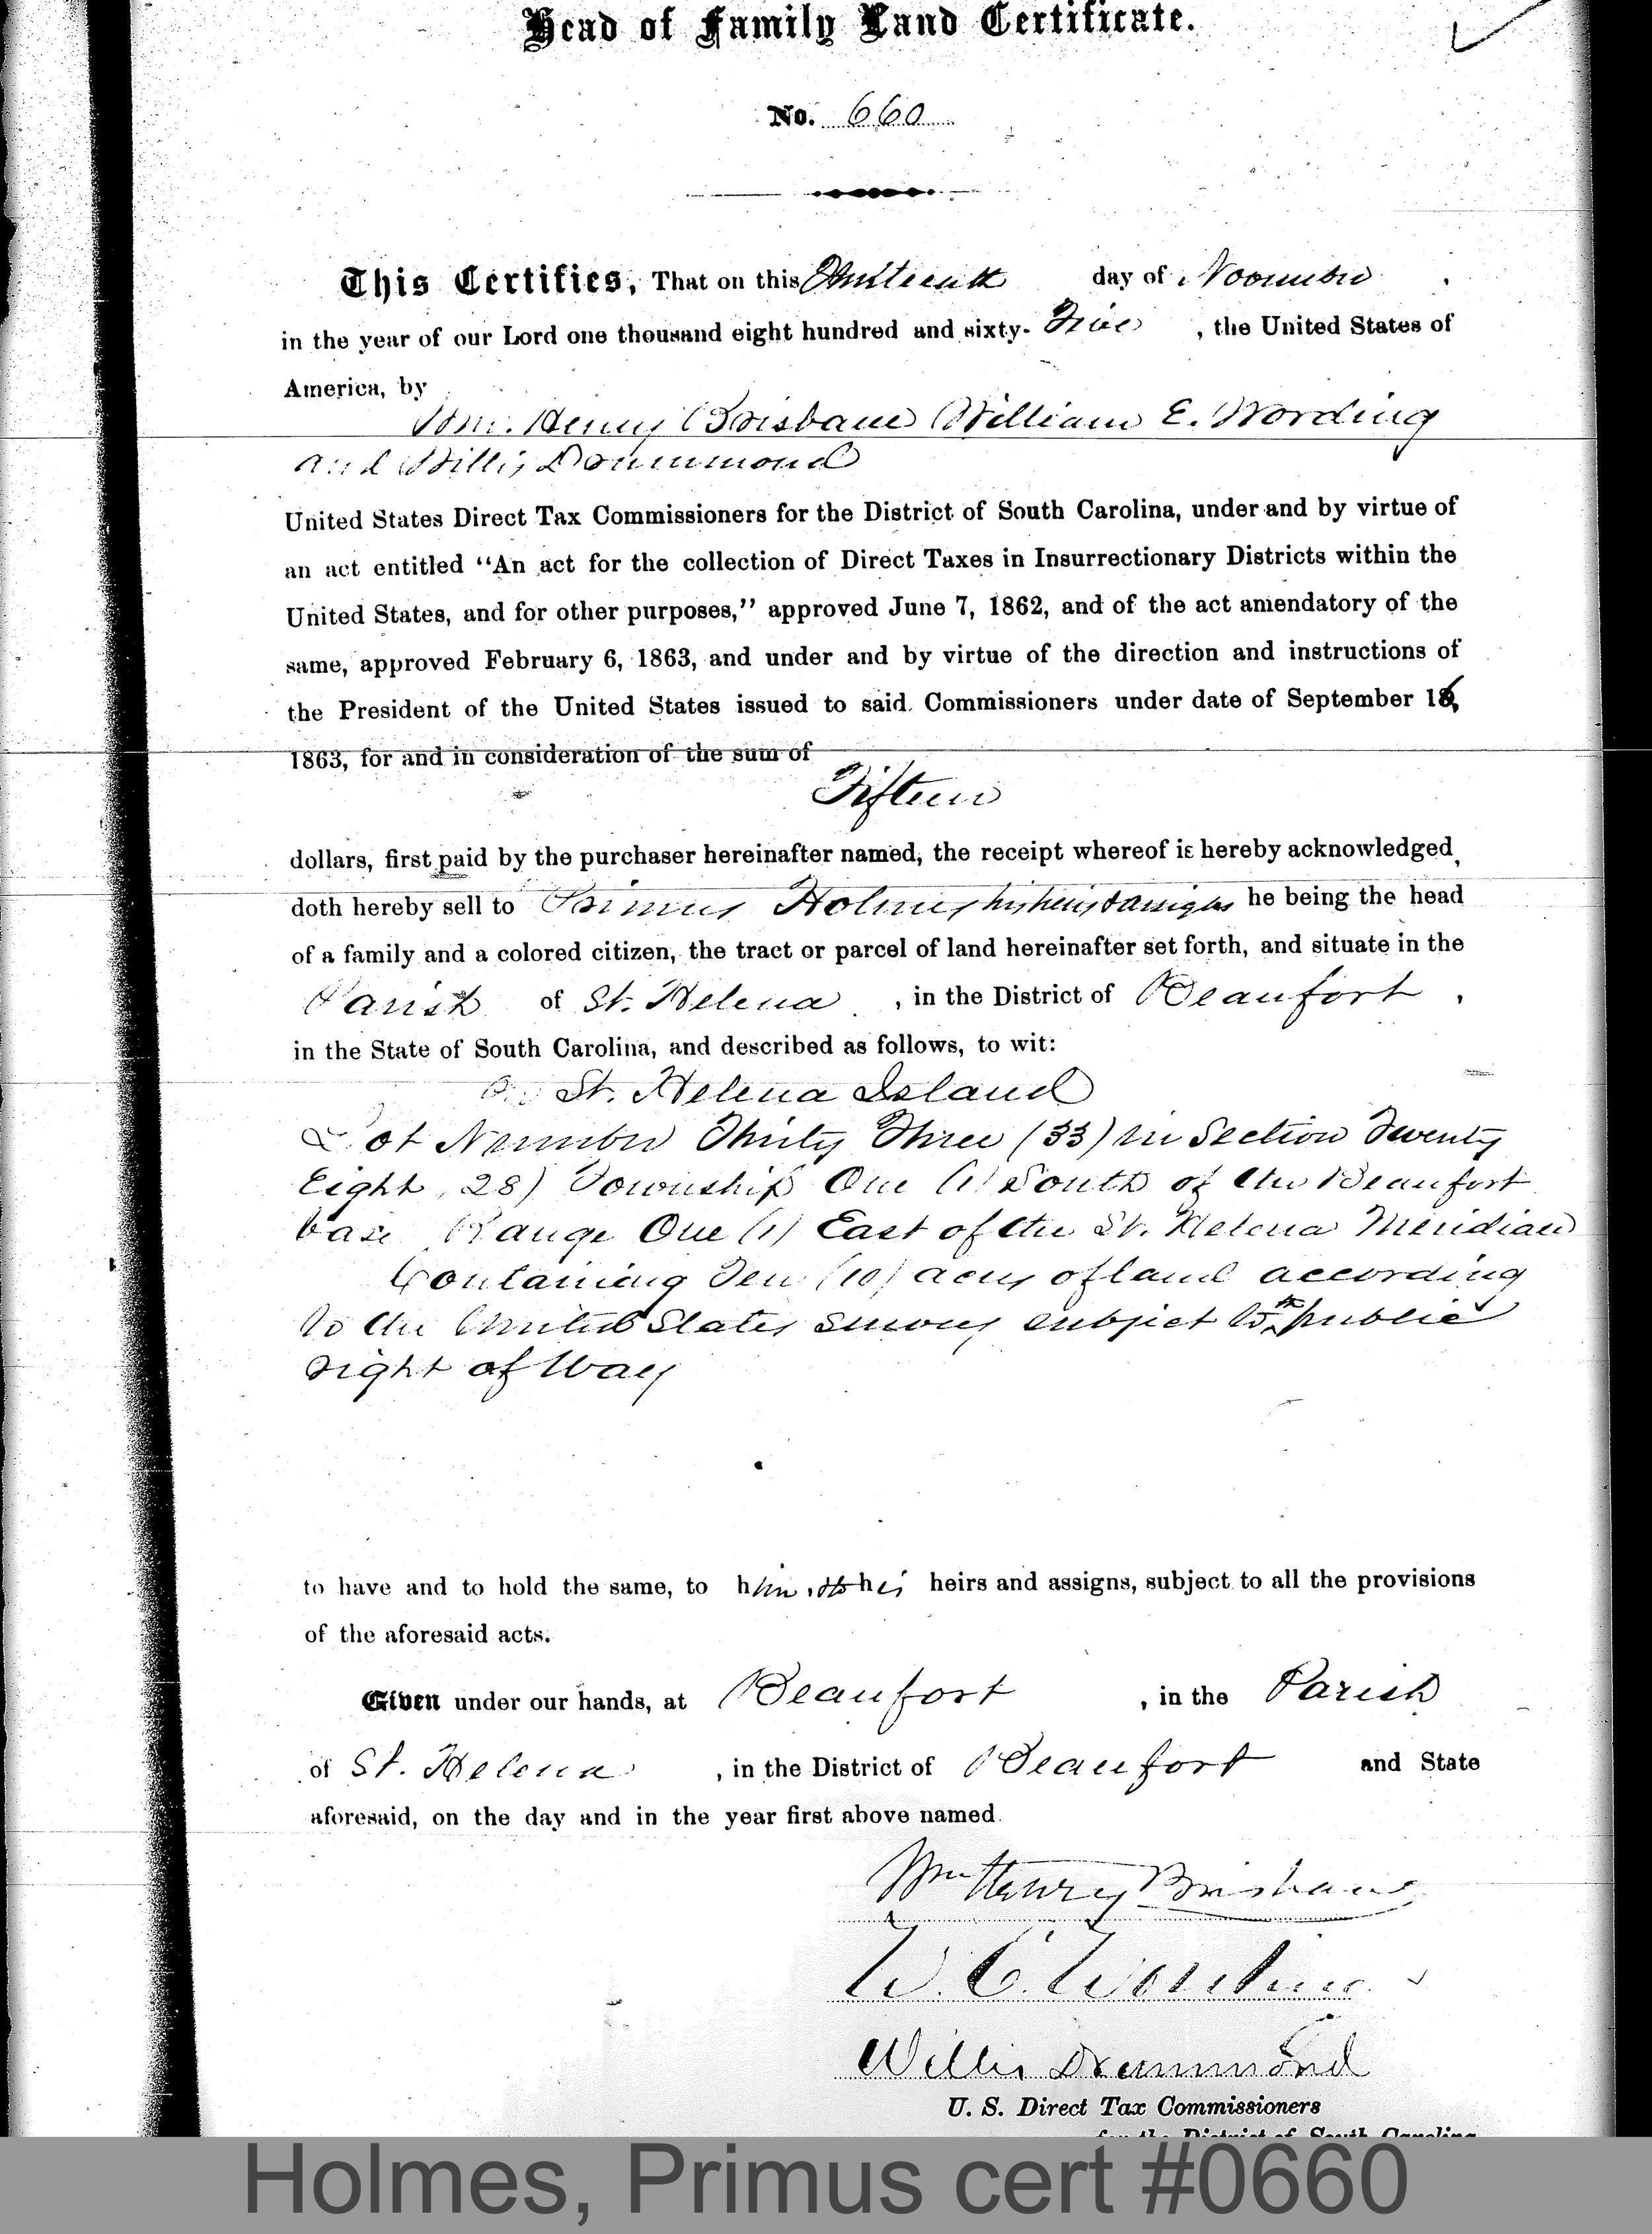 Head of Family Land Certificate.
No. 660
This Certifies, That on this day of November,
in the year of our Lord one thousand eight hundred and sixty-Five, the United States of
America, by
Wm. Henry Brisbane William E. Wording
and Willis Drummond
United States Direct Tax Commissioners for the District of South Carolina, under and by virtue of
an act entitled “An act for the collection of Direct Taxes in Insurrectionary Districts within the
United States, and for other purposes,” approved June 7, 1862, and of the act amendatory of the
same, approved February 6, 1863, and under and by virtue of the direction and instructions of
the President of the United States issued to said Commissioners under date of September 16,
1863, for and in consideration of the sum of
Fifteen
dollars, first paid by the purchaser hereinafter named, the receipt whereof is hereby acknowledged,
doth hereby sell to Primus Holmes his heirs & assigns he being the head
of a family and a colored citizen, the tract or parcel of land hereinafter set forth, and situate in the
Parish of St. Helena, in the District of Beaufort,
in the State of South Carolina, and described as follows, to wit:
On St. Helena Island
Lot Number Thirty Three (33) in Section Twenty
Eight (28) Township One (1) South of the Beaufort
base Range One (1) East of the St. Helena Meridian
Containing Ten (10) acres of land according
to the United States survey subject to the public
right of Way
to have and to hold the same, to him, to his heirs and assigns, subject to all the provisions
of the aforesaid acts.
Given under our hands, at Beaufort, in the Parish
of St. Helena, in the District of Beaufort and State
aforesaid, on the day and in the year first above named.
Wm Henry Brisbane
W. E. Wording
Willis Drummond
U. S. Direct Tax Commissioners
for the District of South Carolina
Holmes, Primus cert #0660